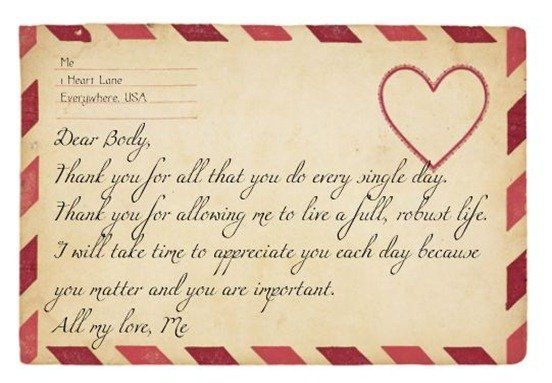 Me
1 Heart Lane
Everywhere, USA
Dear Body,
Thank you for all that you do every single day.
Thank you for allowing me to live a full, robust life.
I will take time to appreciate you each day because
you matter and you are important.
All my love, Me